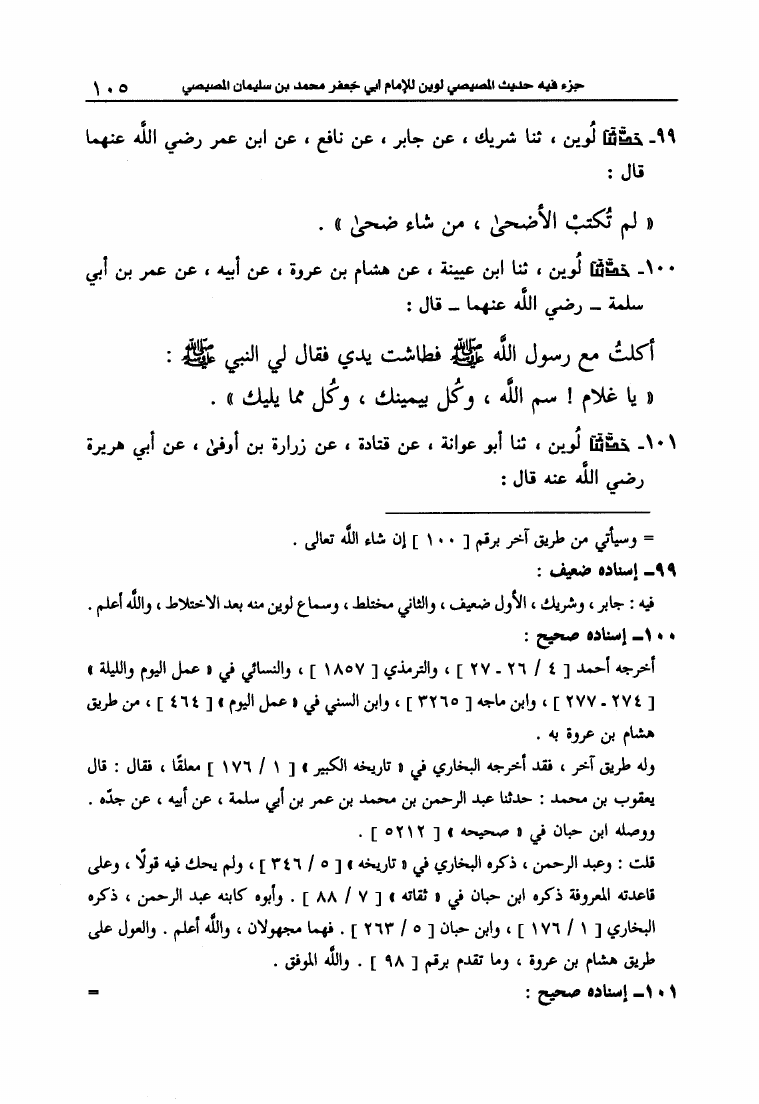 جزء فيه حديث المصيصي لوين للإمام ابي جعفر محمد بن سليمان المصيصي ١٠٥
٩٩ـ حدثنا لُوين ، ثنا شريك ، عن جابر ، عن نافع ، عن ابن عمر رضي اللَّه عنهما
قال :
« لم تُكتبْ الأضحىٰ ، من شاء ضحىٰ » .
١٠٠ـ حدثنا لُوين ، ثنا ابن عيينة ، عن هشام بن عروة ، عن أبيه ، عن عمر بن أبي
سلمة ـ رضي اللَّه عنهما ـ قال :
أكلتُ مع رسول اللَّه ﷺ فطاشت يدي فقال لي النبي ﷺ :
« يا غلام ! سم اللَّه ، وكُل بيمينك ، وكُل مما يليك » .
١٠١ـ حدثنا لُوين ، ثنا أبو عوانة ، عن قتادة ، عن زرارة بن أوفىٰ ، عن أبي هريرة
رضي اللَّه عنه قال :
= وسيأتي من طريق آخر برقم [ ١٠٠ ] إن شاء اللَّه تعالى .
٩٩ـ إسناده ضعيف :
فيه : جابر ، وشريك ، الأول ضعيف ، والثاني مختلط ، وسماع لوين منه بعد الاختلاط ، واللَّه أعلم .
١٠٠ـ إسناده صحيح :
أخرجه أحمد [ ٤ / ٢٦ ـ ٢٧ ] ، والترمذي [ ١٨٥٧ ] ، والنسائي في « عمل اليوم والليلة »
[ ٢٧٤ ـ ٢٧٧ ] ، وابن ماجه [ ٣٢٦٥ ] ، وابن السني في « عمل اليوم » [ ٤٦٤ ] ، من طريق
هشام بن عروة به .
وله طريق آخر ، فقد أخرجه البخاري في « تاريخه الكبير » [ ١ / ١٧٦ ] معلقًا ، فقال : قال
يعقوب بن محمد : حدثنا عبد الرحمن بن محمد بن عمر بن أبي سلمة ، عن أبيه ، عن جدّه .
ووصله ابن حبان في « صحيحه » [ ٥٢١٢ ] .
قلت : وعبد الرحمن ، ذكره البخاري في « تاريخه » [ ٥ / ٣٤٦ ] ، ولم يحك فيه قولًا ، وعلى
قاعدته المعروفة ذكره ابن حبان في « ثقاته » [ ٧ / ٨٨ ] . وأبوه كابنه عبد الرحمن ، ذكره
البخاري [ ١ / ١٧٦ ] ، وابن حبان [ ٥ / ٢٦٣ ] . فهما مجهولان ، واللَّه أعلم . والعول على
طريق هشام بن عروة ، وما تقدم برقم [ ٩٨ ] . واللَّه الموفق .
١٠١ـ إسناده صحيح : =